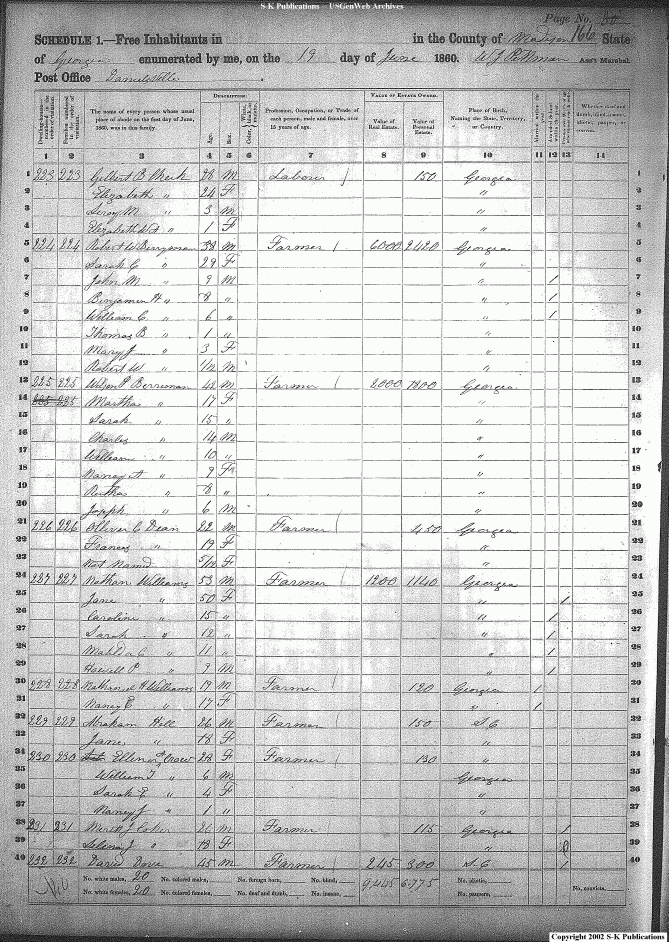 S-K Publications - USGenWeb Archives
Page No. 80
166
SCHEDULE 1.—Free Inhabitants in in the County of Madison State
of Georgia enumerated by me, on the 19 day of June 1860. W J Pittman Ass't Marshal.
Post Office Danielsville.
DESCRIPTION. VALUE OF ESTATE OWNED.
Dwelling-houses numbered in the order of visitation. Families numbered in the order of visitation. The name of every person whose usual place of abode on the first day of June, 1860, was in this family. Age. Sex. Color, Profession, Occupation, or Trade of each person, male and female, over 15 years of age. Value of Real Estate. Value of Personal Estate. Place of Birth, Naming the State, Territory, or Country. Married within the year. Attended School within the year. Whether deaf and dumb, blind, insane, idiotic, pauper, or convict.
1 2 3 4 5 6 7 8 9 10 11 12 13 14
1 223 223 Gilbert B Cheek 28 M Laborer / 150 Georgia 1
2 Elizabeth " 24 F " 2
3 Leroy M " 3 M " 3
4 Elizabeth " 1 F " 4
5 224 224 Robert W Berryman 38 M Farmer / 6000 2420 Georgia 5
6 Sarah C " 29 F " 6
7 John M " 9 M " 1 7
8 Benjamin H " 8 " " 1 8
9 William C " 6 " " 1 9
10 Thomas B " 1 " " 10
11 Mary J " 3 F " 11
12 Robert W " 1/12 M " 12
13 225 225 Wilson P Berriman 42 M Farmer / 2000 7800 Georgia 13
14 225 225 Martha " 17 F " 14
15 Sarah " 15 " " 15
16 Charles " 14 M " 16
17 William " 10 " " 17
18 Nancy A " 9 F " 18
19 " 8 " " 19
20 Joseph " 6 M " 20
21 226 226 Olliver C Dean 22 M Farmer / 450 Georgia 21
22 Frances " 19 F " 22
23 Not Named 5/12 F " 23
24 227 227 Nathan Williams 53 M Farmer / 1200 1140 Georgia 24
25 Jane " 50 F " 1 25
26 Caroline " 15 " " 1 26
27 Sarah " 12 " " 1 27
28 " 11 " " 1 28
29 Howell P " 9 M " 1 29
30 228 228 Nathaniel H Williams 19 M Farmer / 120 Georgia 1 30
31 Nancy E " 17 F " 1 31
32 229 229 Abraham Hill 26 M Farmer / 150 S C 32
33 Jane " 18 F " 33
34 230 230 Ellinor 28 F Farmer / 130 " 34
35 William T " 6 M Georgia 35
36 Sarah E " 4 F " 36
37 Nancy J " 1 " " 37
38 231 231 26 M Farmer 115 Georgia 1 38
39 Selena J " 18 F " 39
40 232 232 David Dove 45 M Farmer / 245 300 S.C 1 40
No. white males, 20 No. colored males, No. foreign born, No. blind, 9,445 6775 No. idiotic,
No. white females, 20 No. colored females, No. deaf and dumb, No. insane, No. paupers, No. convicts,
Copyright 2002 S-K Publications